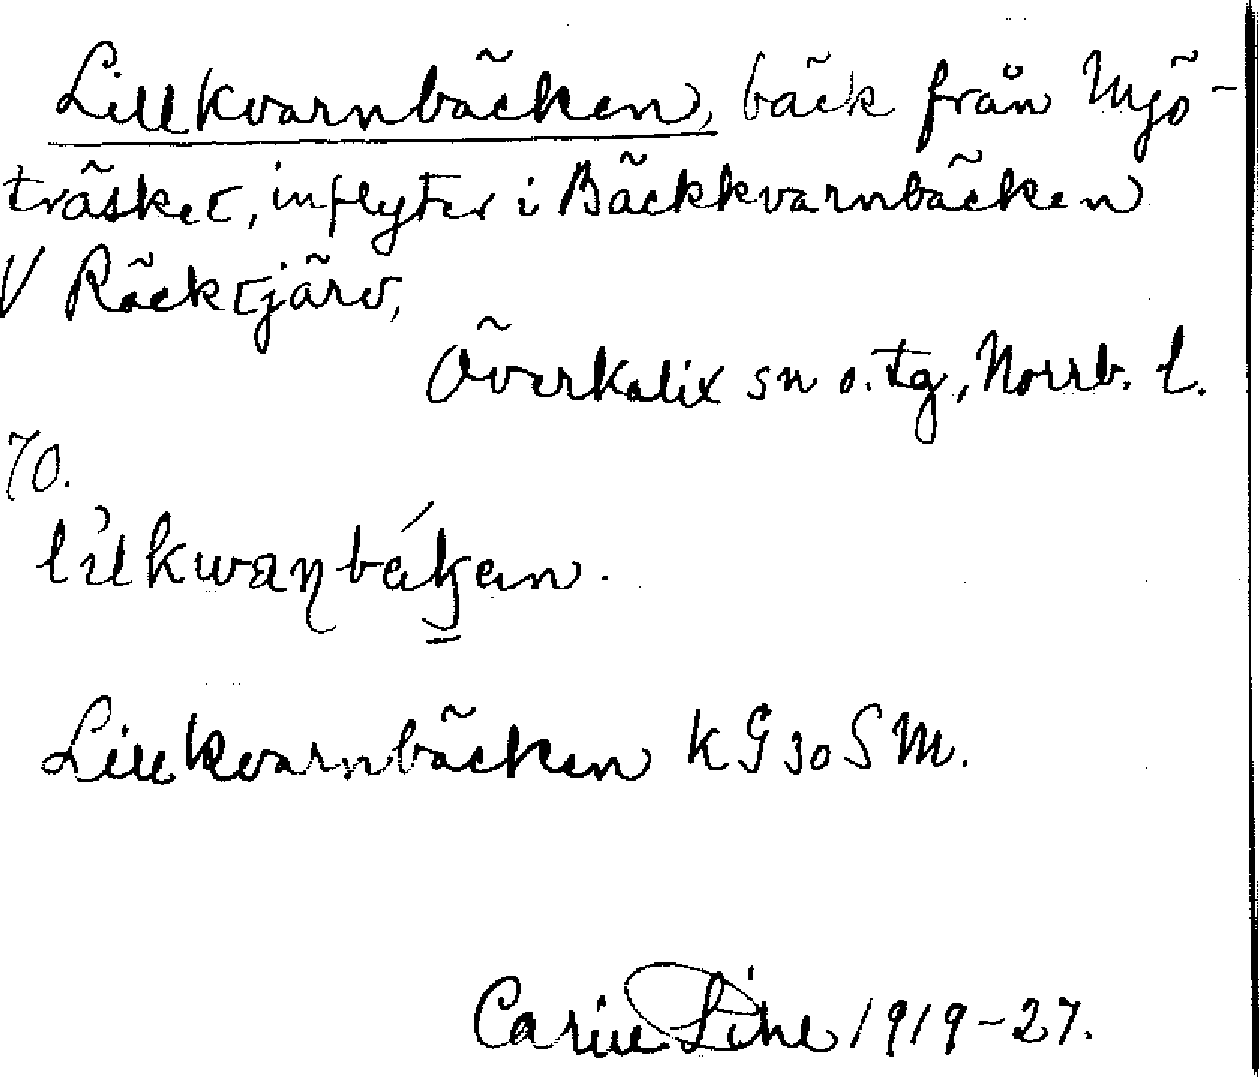 Lillkvarnbäcken, bäck från Mjö-
träsket, inflyter i Bäckkvarnbäcken
V Räcktjärv,
Överkalix sn o. tg, Norrb. l.
70.
Lillkvarnbäcken KG 30 SM.
Carin Line 1919-27.